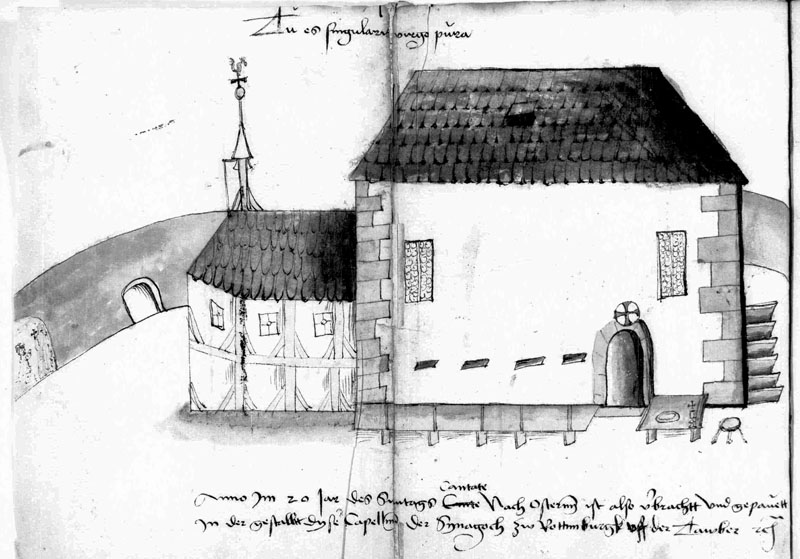 Tu es singularis virgo pura
Cantate
Anno Im 20 Jar des Suntags Nach Ostern ist also und gepauett
In der gestalltt dyse Capelln der Synagoch zw Rottmburgk uff der Tawber